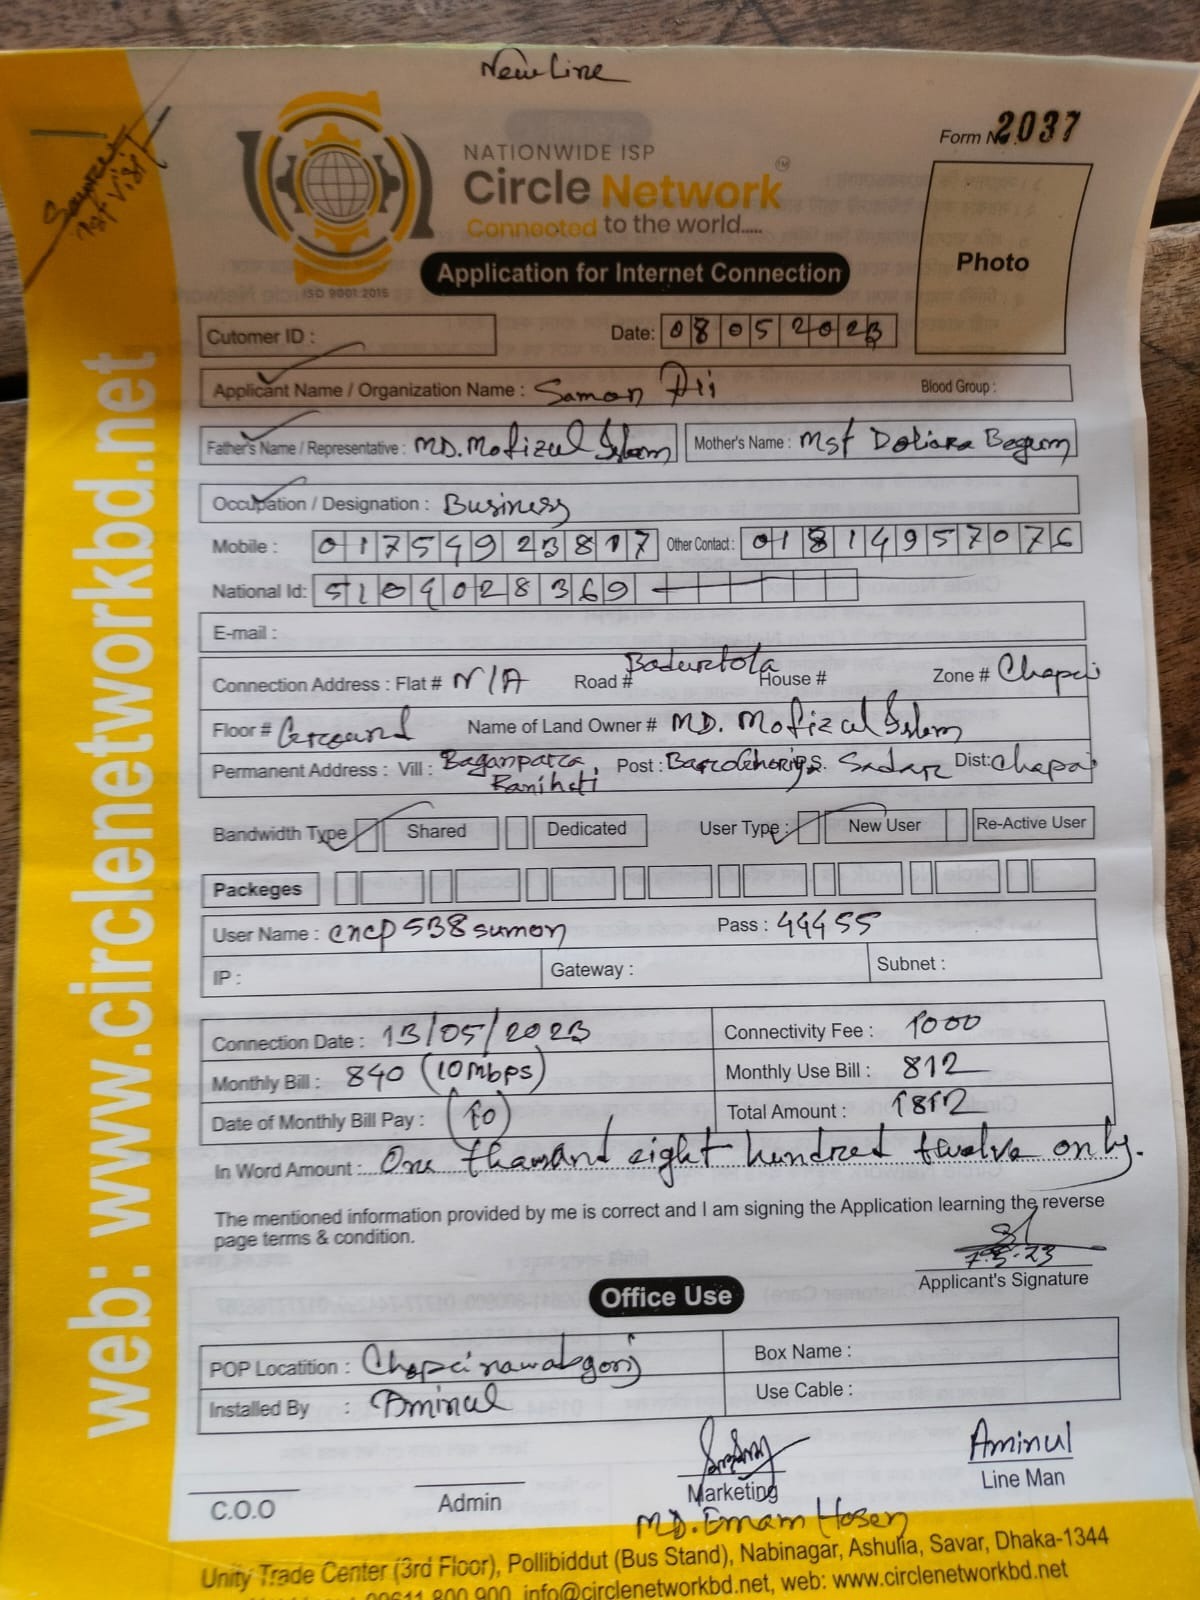 New Line
Form No. 2037
NATIONWIDE ISP
Circle Network TM
Connected to the world.....
ISO 9001:2015
Application for Internet Connection
Photo
Source
1st Visit
web: www.circlenetworkbd.net
Cutomer ID :
Date: 08052023
Applicant Name / Organization Name : Samon Ali
Blood Group :
Father's Name / Representative : MD. Mofizul Islam
Mother's Name : Mst Doliara Begum
Occupation / Designation : Business
Mobile : 01754923817
Other Contact : 01814957076
National Id: 5104028369
E-mail :
Connection Address : Flat # N/A Road # Badurtola House # Zone # Chapai
Floor # Ground Name of Land Owner # MD. Mofizul Islam
Permanent Address : Vill : Baganparra, Ranihati Post : Sadar Dist: Chapai
Bandwidth Type Shared Dedicated User Type : New User Re-Active User
Packeges
User Name : cncp538sumon Pass : 44455
IP : Gateway : Subnet :
Connection Date : 13/05/2023 Connectivity Fee : 1000
Monthly Bill : 840 (10Mbps) Monthly Use Bill : 812
Date of Monthly Bill Pay : (10) Total Amount : 1812
In Word Amount : One thousand eight hundred twelve only.
The mentioned information provided by me is correct and I am signing the Application learning the reverse
page terms & condition.
7.5.23
Applicant's Signature
Office Use
POP Locatition : Chapainawabgonj Box Name :
Installed By : Aminul Use Cable :
Aminul
C.O.O Admin Marketing Line Man
MD. Emam Hosen
Unity Trade Center (3rd Floor), Pollibiddut (Bus Stand), Nabinagar, Ashulia, Savar, Dhaka-1344
09611 800 900, info@circlenetworkbd.net, web: www.circlenetworkbd.net